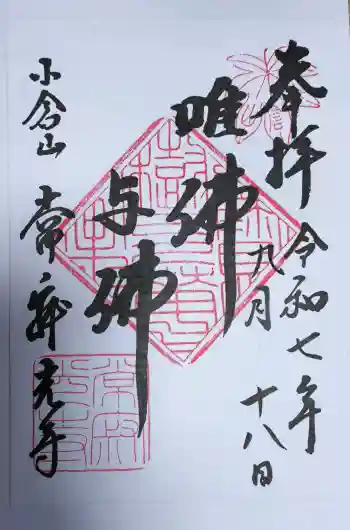 奉拝
令和七年
九月
十八日
唯佛
与佛
小倉山 常寂光寺